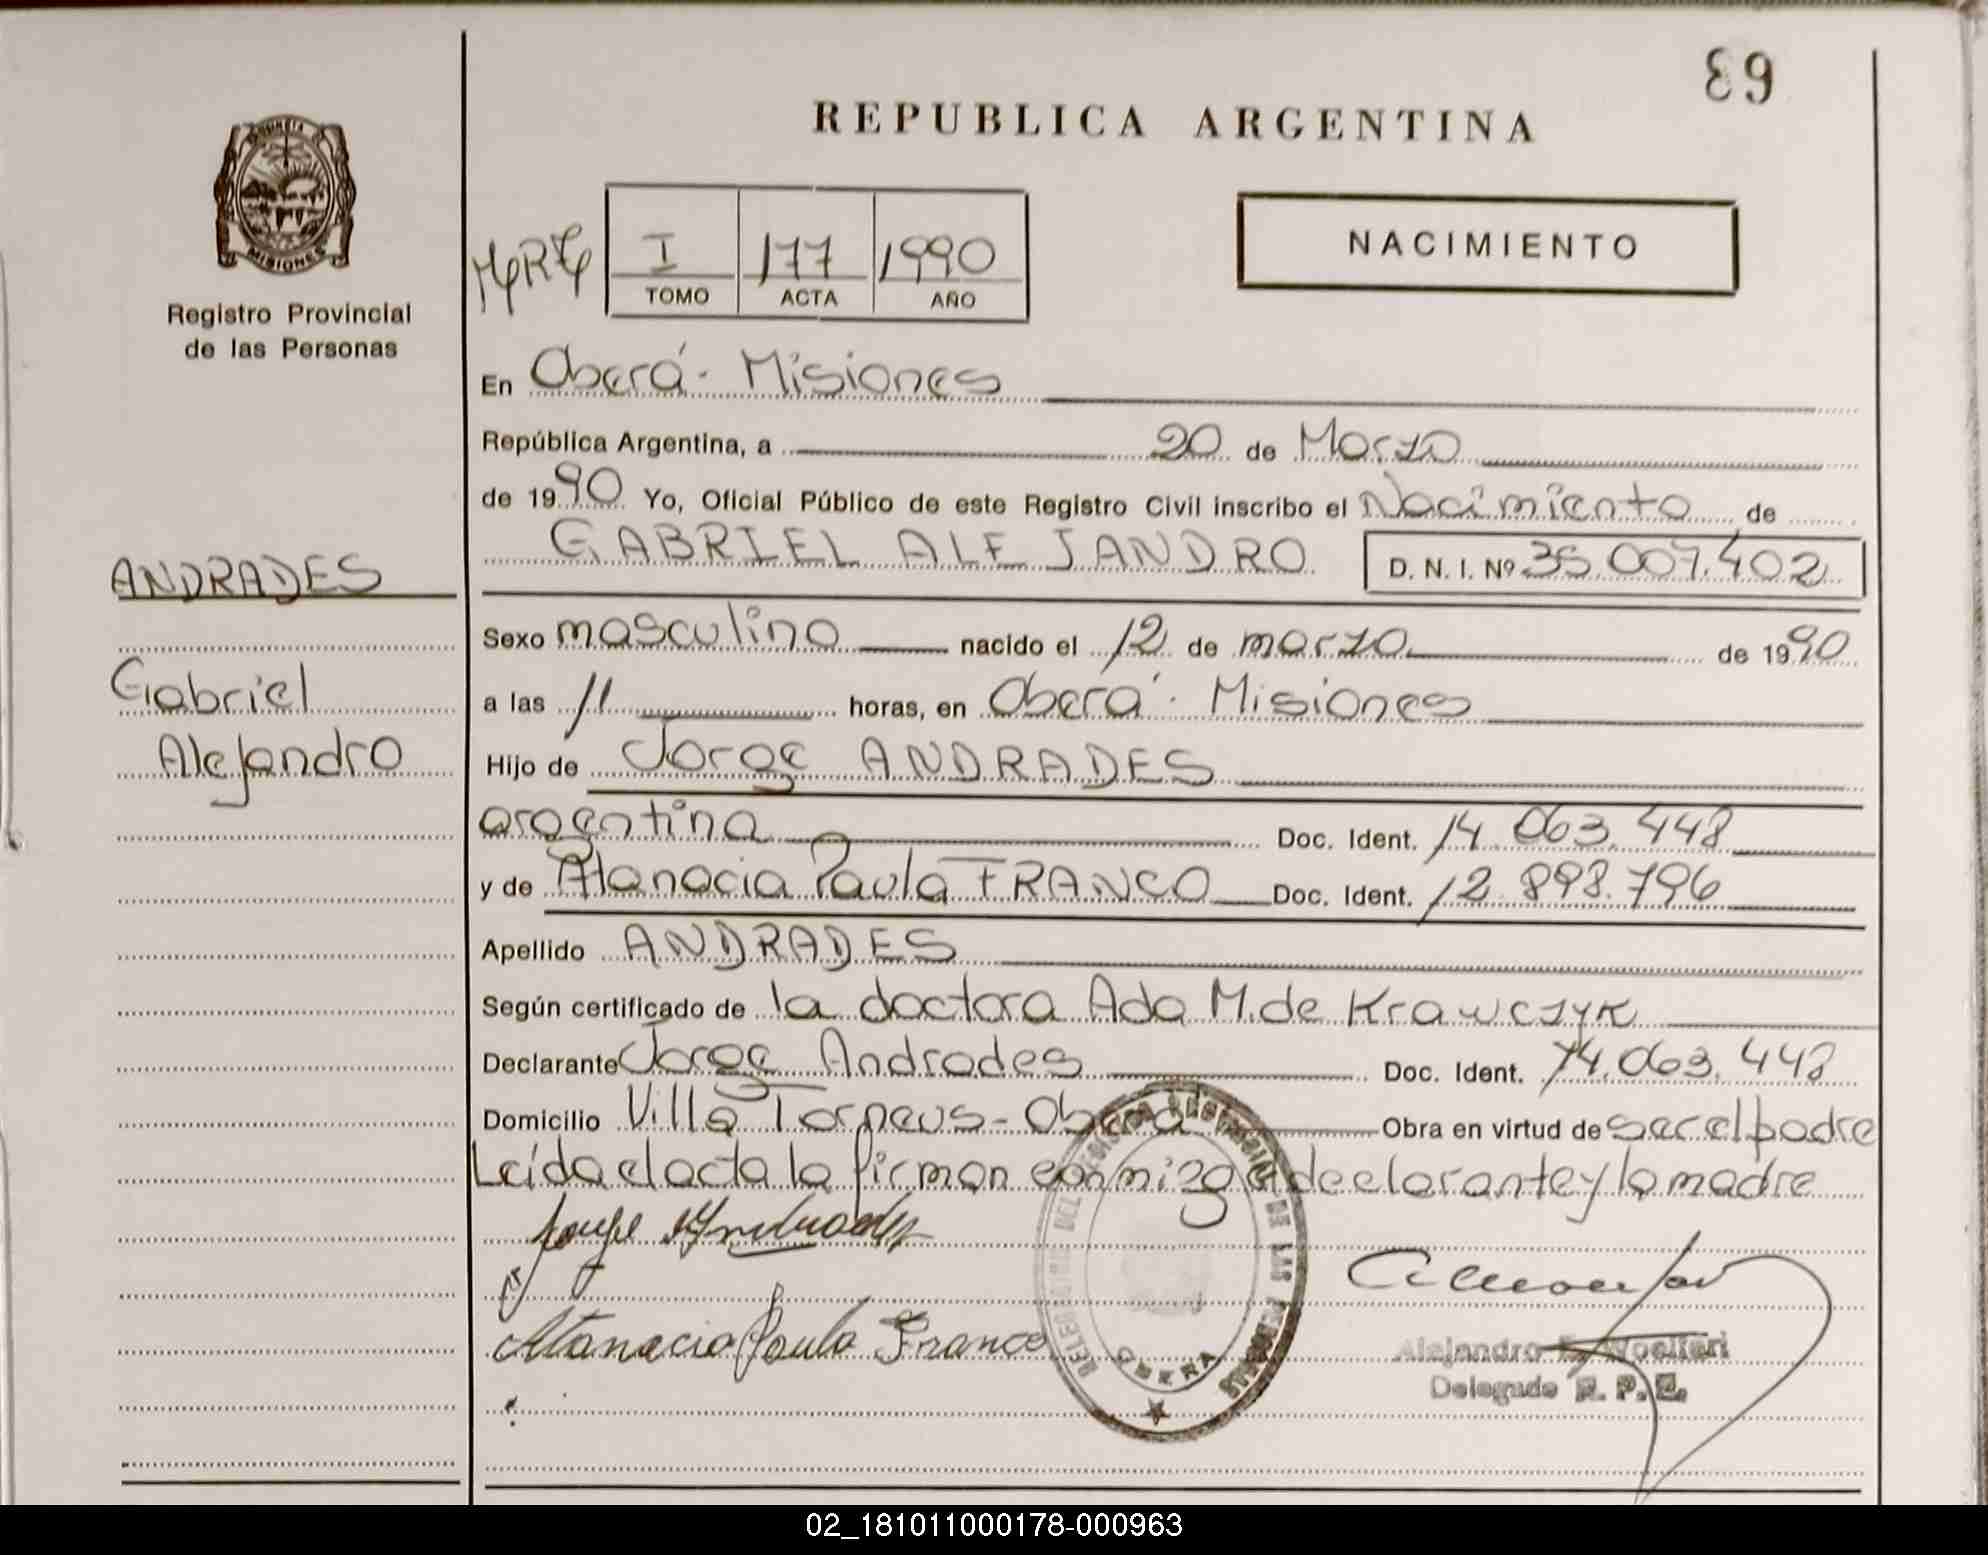 89
REPUBLICA ARGENTINA
PROVINCIA
MISIONES
Registro Provincial
de las Personas
I 177 1990
TOMO ACTA AÑO
NACIMIENTO
En Oberá - Misiones
República Argentina, a 20 de Marzo
de 1990 Yo, Oficial Público de este Registro Civil inscribo el Nacimiento de
GABRIEL ALEJANDRO D. N. I. Nº 35.007.402
ANDRADES
Gabriel
Alejandro
Sexo masculino nacido el 12 de marzo de 1990
a las 11 horas, en Oberá - Misiones
Hijo de Jorge ANDRADES
argentina Doc. Ident. 14.063.448
y de Atanacia Paula FRANCO Doc. Ident. 12.898.796
Apellido ANDRADES
Según certificado de la doctora Ada M. de Krawczyk
Declarante Jorge Andrades Doc. Ident. 14.063.448
Domicilio Villa Torneus - Oberá Obra en virtud de ser el padre
Leída el acta la firman conmigo el declarante y la madre
Jorge Andrades
Atanacia Paula Franco
DEL REGISTRO PROVINCIAL DE LAS PERSONAS
OBERA
Alejandro
Delegado R. P. P.
02_181011000178-000963